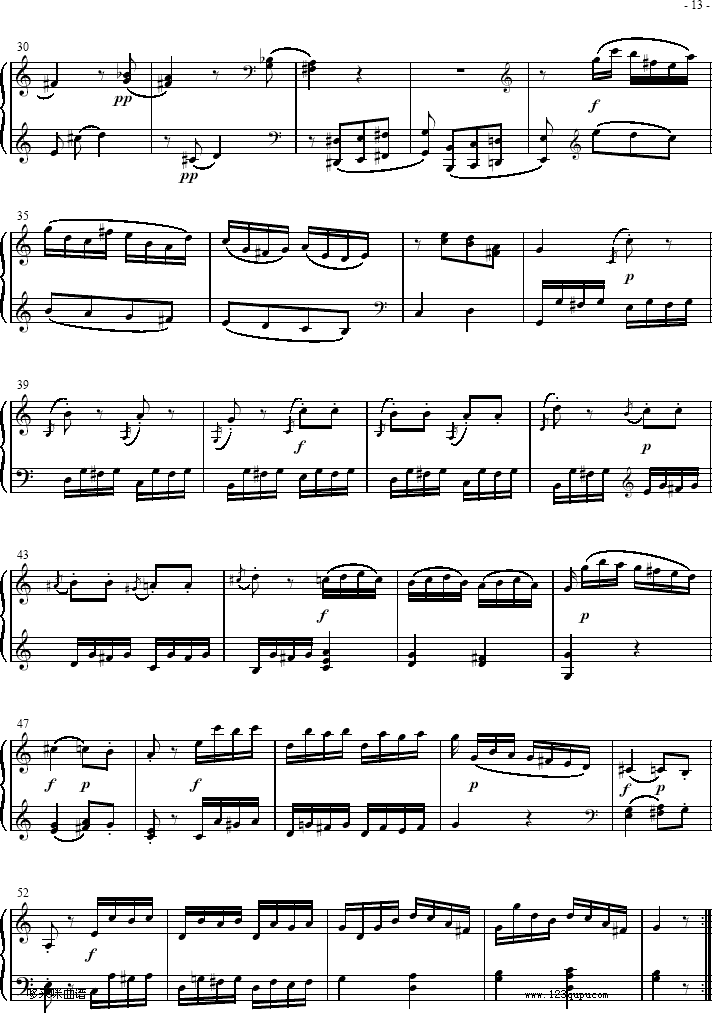 - 13 -
30
pp
pp
f
35
p
39
f
p
43
f
p
47
f
p
f
p
f
p
52
f
哆来咪曲谱
www.123qupu.com